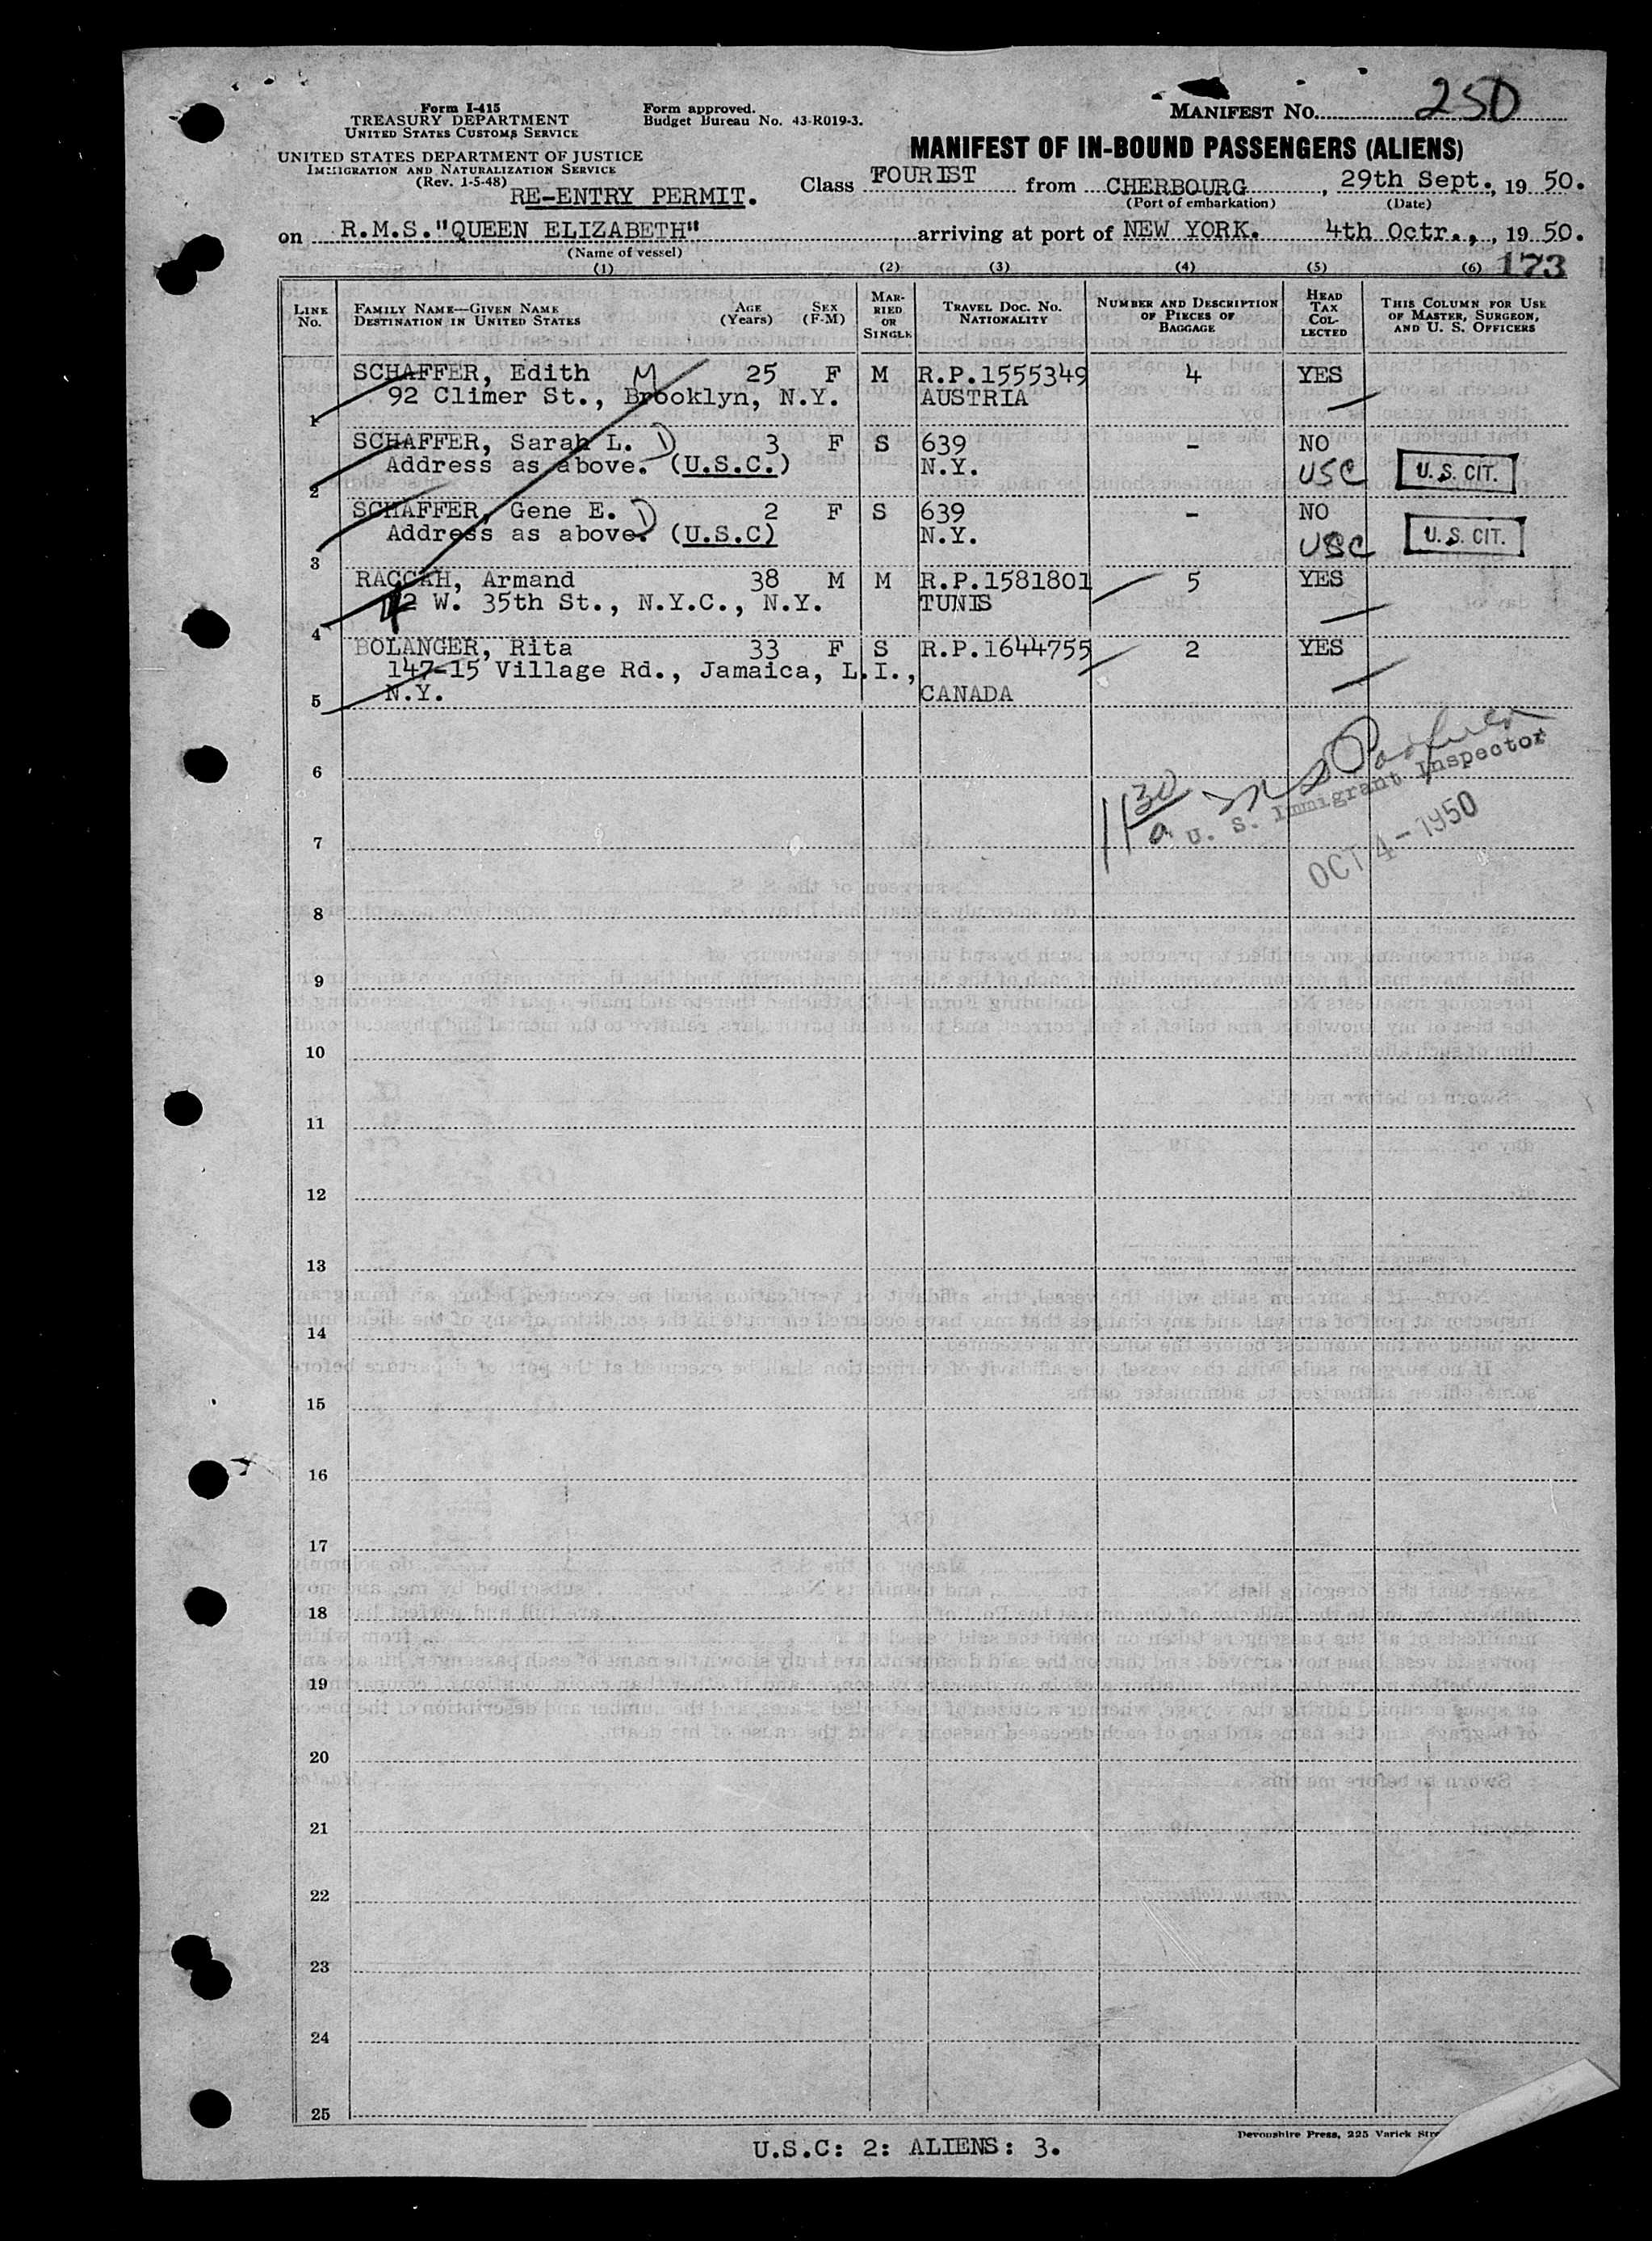 Form I-415
TREASURY DEPARTMENT
UNITED STATES CUSTOMS SERVICE
UNITED STATES DEPARTMENT OF JUSTICE
IMMIGRATION AND NATURALIZATION SERVICE
(Rev. 1-5-48)
Form approved.
Budget Bureau No. 43-R019-3.
MANIFEST NO. 250
MANIFEST OF IN-BOUND PASSENGERS (ALIENS)
RE-ENTRY PERMIT.
Class TOURIST from CHERBOURG, 29th Sept., 1950.
(Port of embarkation) (Date)
on R.M.S."QUEEN ELIZABETH" arriving at port of NEW YORK. 4th Octr., 1950.
(Name of vessel)
(1) (2) (3) (4) (5) (6) 173
LINE No. FAMILY NAME—GIVEN NAME DESTINATION IN UNITED STATES AGE (Years) SEX (F-M) MARRIED OR SINGLE TRAVEL DOC. NO. NATIONALITY NUMBER AND DESCRIPTION OF PIECES OF BAGGAGE HEAD TAX COLLECTED THIS COLUMN FOR USE OF MASTER, SURGEON, AND U. S. OFFICERS
SCHAFFER, Edith M 25 F M R.P.1555349 4 YES
1 92 Climer St., Brooklyn, N.Y. AUSTRIA
SCHAFFER, Sarah L. D 3 F S 639 - NO
2 Address as above. (U.S.C.) N.Y. USC U. S. CIT.
SCHAFFER, Gene E. D 2 F S 639 - NO
3 Address as above. (U.S.C) N.Y. USC U. S. CIT.
RACCAH, Armand 38 M M R.P.1581801 5 YES
4 W. 35th St., N.Y.C., N.Y. TUNIS
BOLANGER, Rita 33 F S R.P.1644755 2 YES
147-15 Village Rd., Jamaica, L.I.,
5 N.Y. CANADA
6
11 30 a
U. S. Immigrant Inspector
7
OCT 4 - 1950
8
9
10
11
12
13
14
15
16
17
18
19
20
21
22
23
24
25
Devonshire Press, 225 Varick
U.S.C: 2: ALIENS: 3.